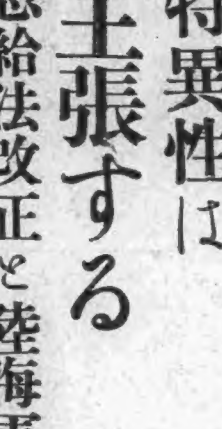 特異性は
主張する
恩給法改正と陸海軍